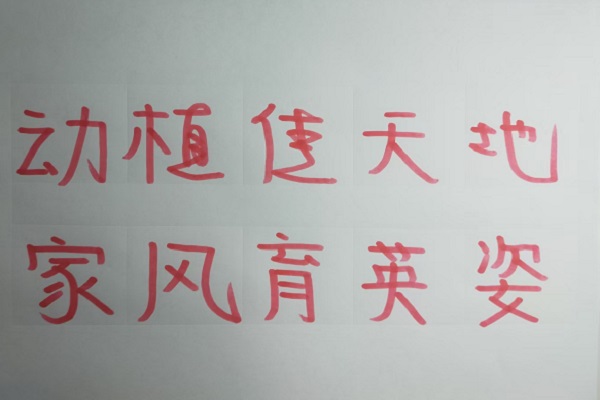 动植天地
家风育英姿